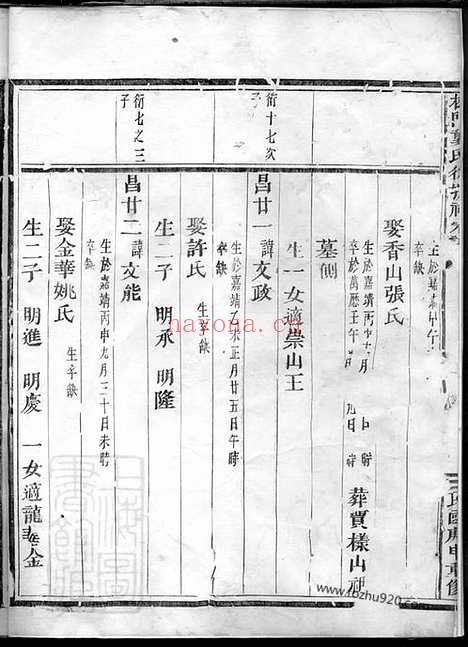 生於嘉靖甲午
卒缺
娶香山張氏
生於嘉靖丙申 月 日 時
卒於萬歷壬午 月 九日 時
葬賈樣山祠
墓側
生一女適崇山王
衍十七次
子
昌廿一
諱文政
生於嘉靖乙未正月廿五日午時
卒缺
娶許氏
生卒缺
生二子 明承 明隆
衍七之三
子
昌廿二
諱文能
生於嘉靖丙申九月三十日未時
卒缺
娶金華姚氏
生卒缺
生二子 明進 明慶 一女適龍 金
民國庚申重修
nayona.cn
www.fozhu920.com